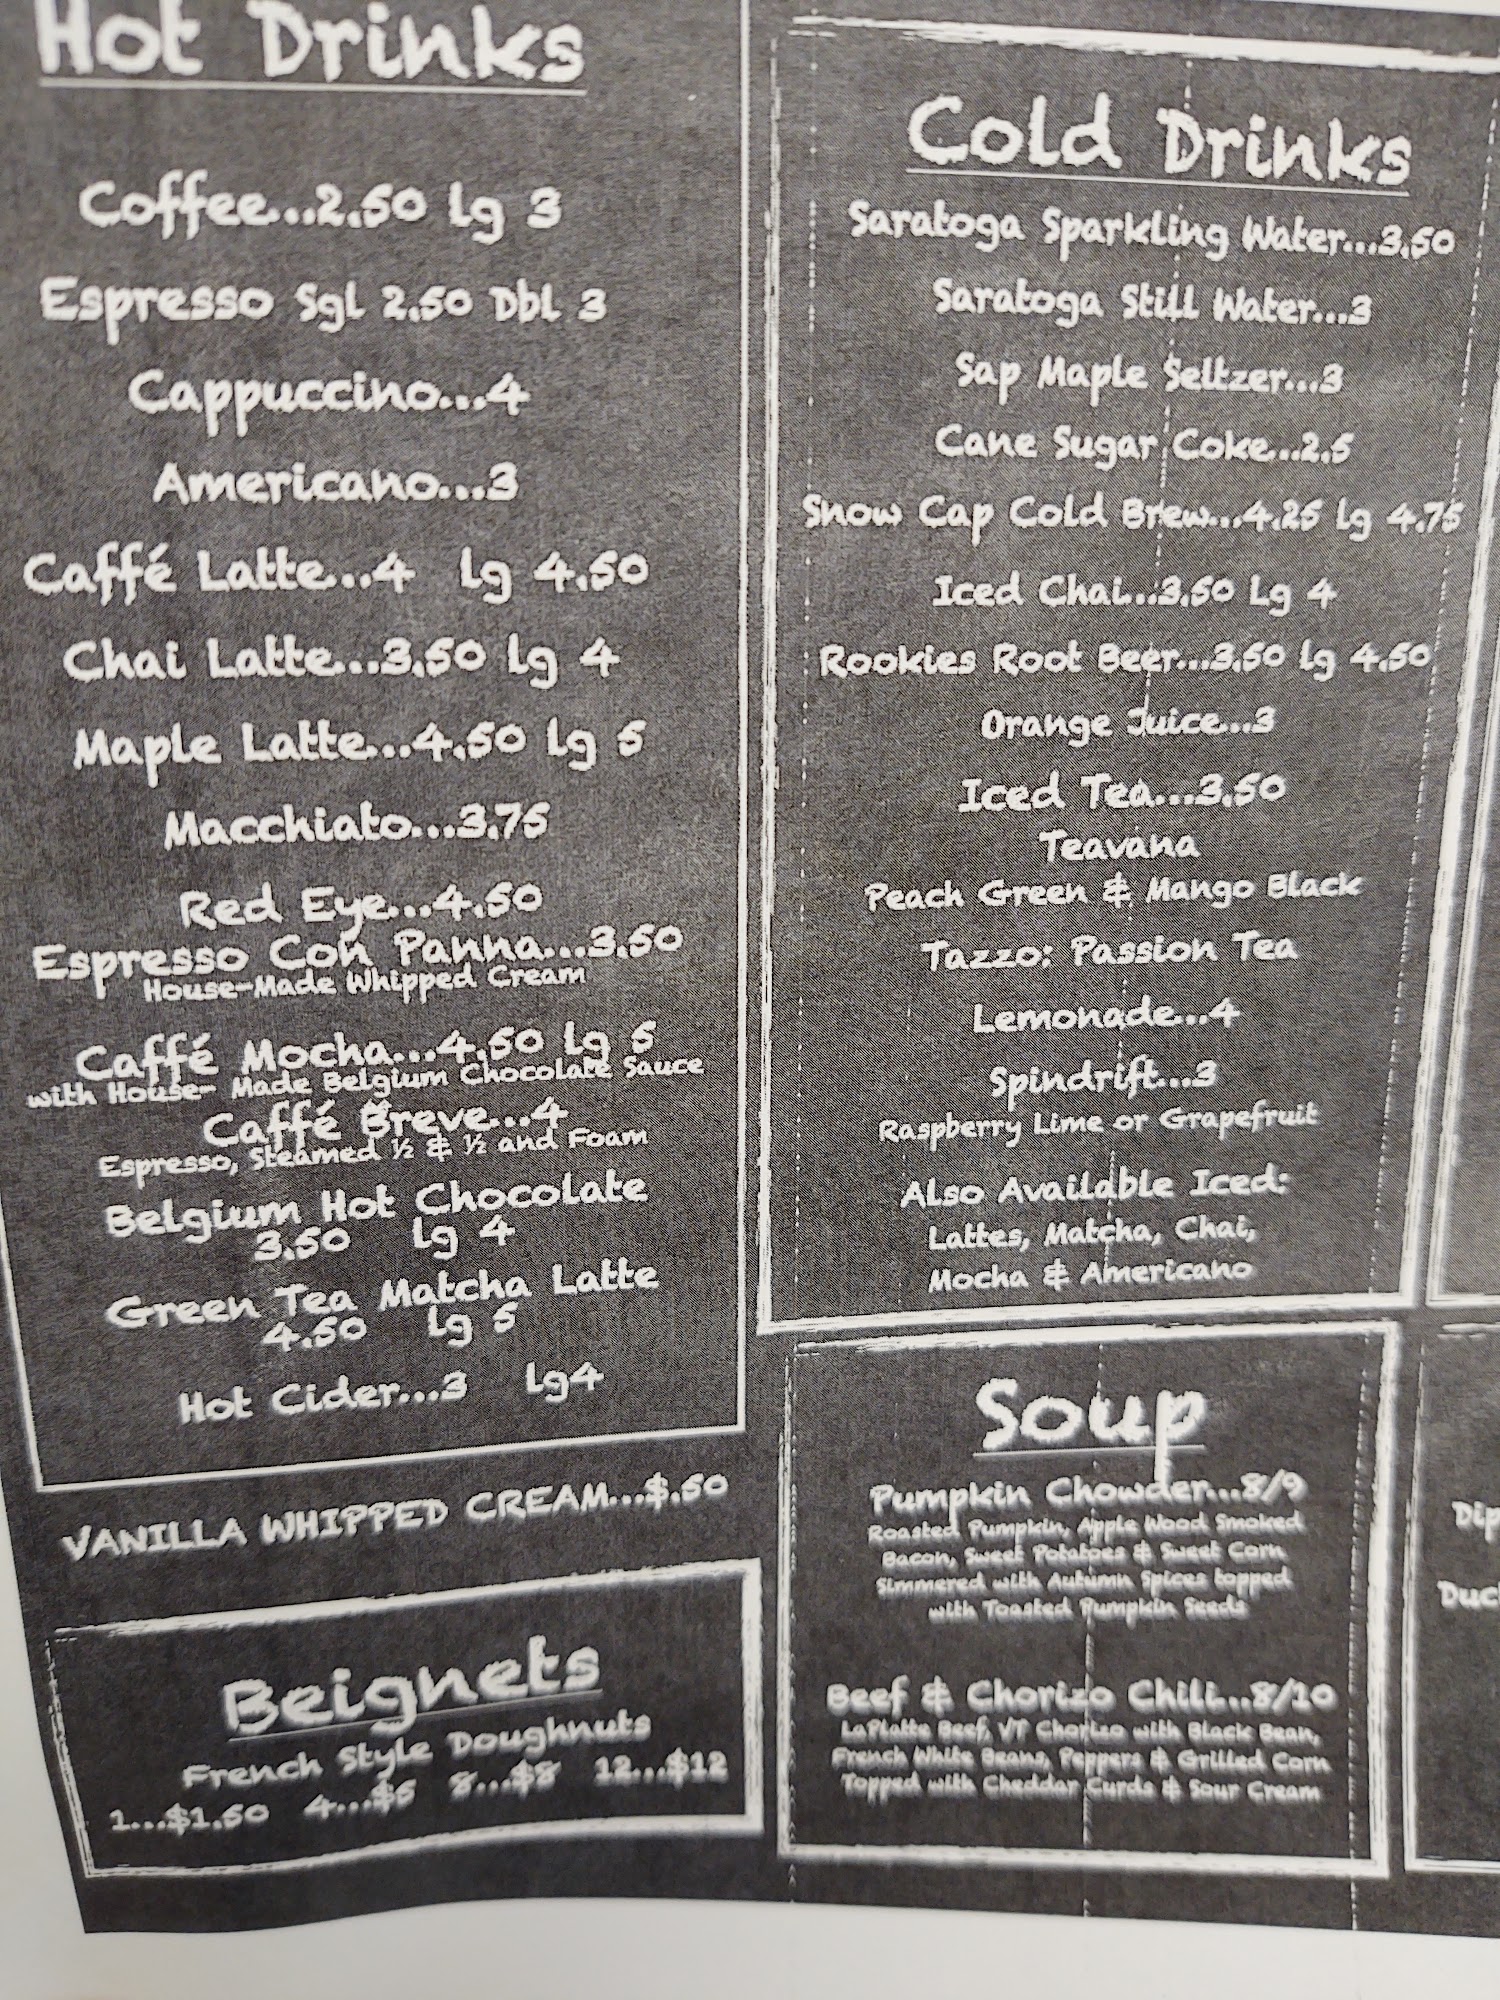 Hot Drinks
Coffee...2.50 lg 3
Espresso Sgl 2.50 Dbl 3
Cappuccino...4
Americano...3
Caffé Latte...4 lg 4.50
Chai Latte...3.50 lg 4
Maple Latte...4.50 lg 5
Macchiato...3.75
Red Eye...4.50
Espresso Con Panna...3.50
House-Made Whipped Cream
Caffé Mocha...4.50 lg 5
with House- Made Belgium Chocolate Sauce
Caffé Breve...4
Espresso, Steamed ½ & ½ and Foam
Belgium Hot Chocolate
3.50 lg 4
Green Tea Matcha Latte
4.50 lg 5
Hot Cider...3 lg4
VANILLA WHIPPED CREAM...$.50
Beignets
French Style Doughnuts
1...$1.50 4...$5 8...$8 12...$12
Cold Drinks
Saratoga Sparkling Water...3.50
Saratoga Still Water...3
Sap Maple Seltzer...3
Cane Sugar Coke...2.5
Snow Cap Cold Brew...4.25 lg 4.75
Iced Chai...3.50 Lg 4
Rookies Root Beer...3.50 lg 4.50
Orange Juice...3
Iced Tea...3.50
Teavana
Peach Green & Mango Black
Tazzo: Passion Tea
Lemonade...4
Spindrift...3
Raspberry Lime or Grapefruit
Also Available Iced:
Lattes, Matcha, Chai,
Mocha & Americano
Soup
Pumpkin Chowder...8/9
Roasted Pumpkin, Apple Wood Smoked
Bacon, Sweet Potatoes & Sweet Corn
Simmered with Autumn Spices topped
with Toasted Pumpkin Seeds
Beef & Chorizo Chili...8/10
LaPlatte Beef, VT Chorizo with Black Bean,
French White Beans, Peppers & Grilled Corn
Topped with Cheddar Curds & Sour Cream
Dip
Duc